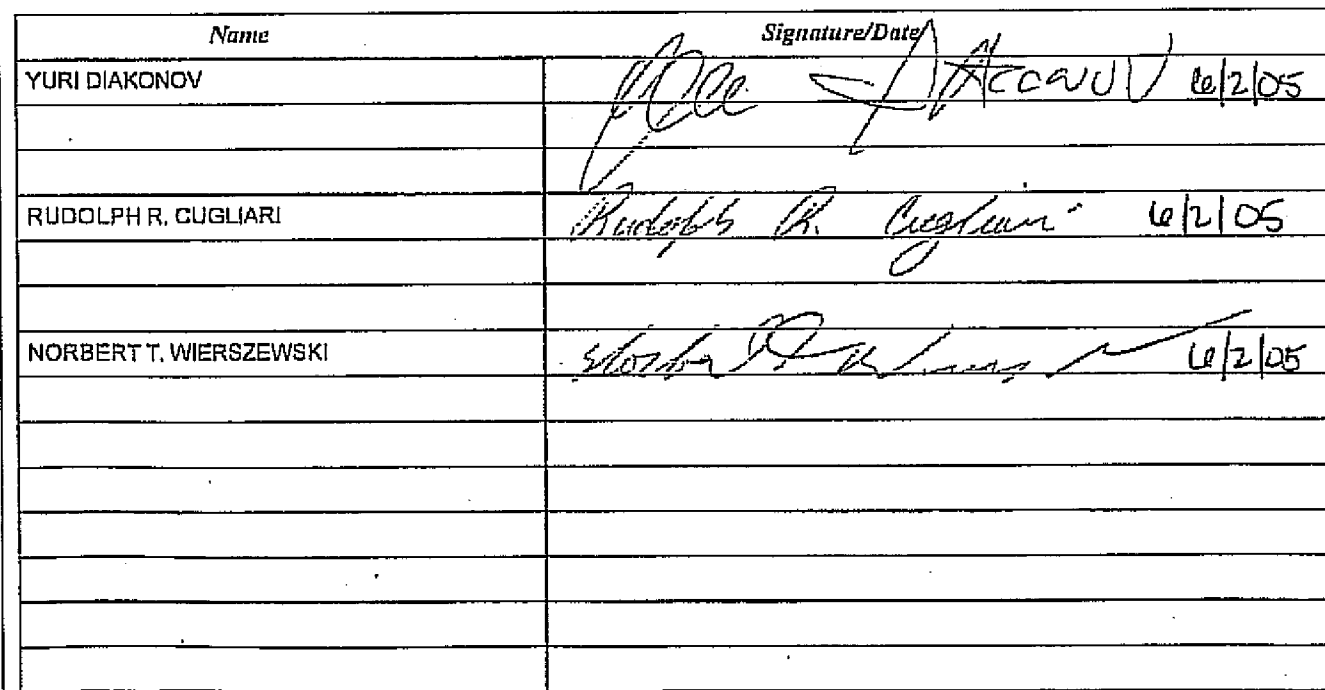 Name Signature/Date
YURI DIAKONOV 6/2/05
RUDOLPH R. CUGLIARI Rudolph R. Cugliari 6/2/05
NORBERT T. WIERSZEWSKI 6/2/05